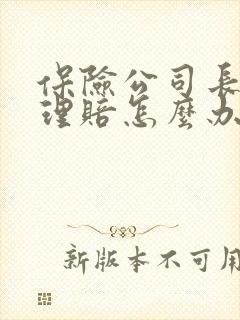 保險公司長
理賠怎麼办
新版本不可用